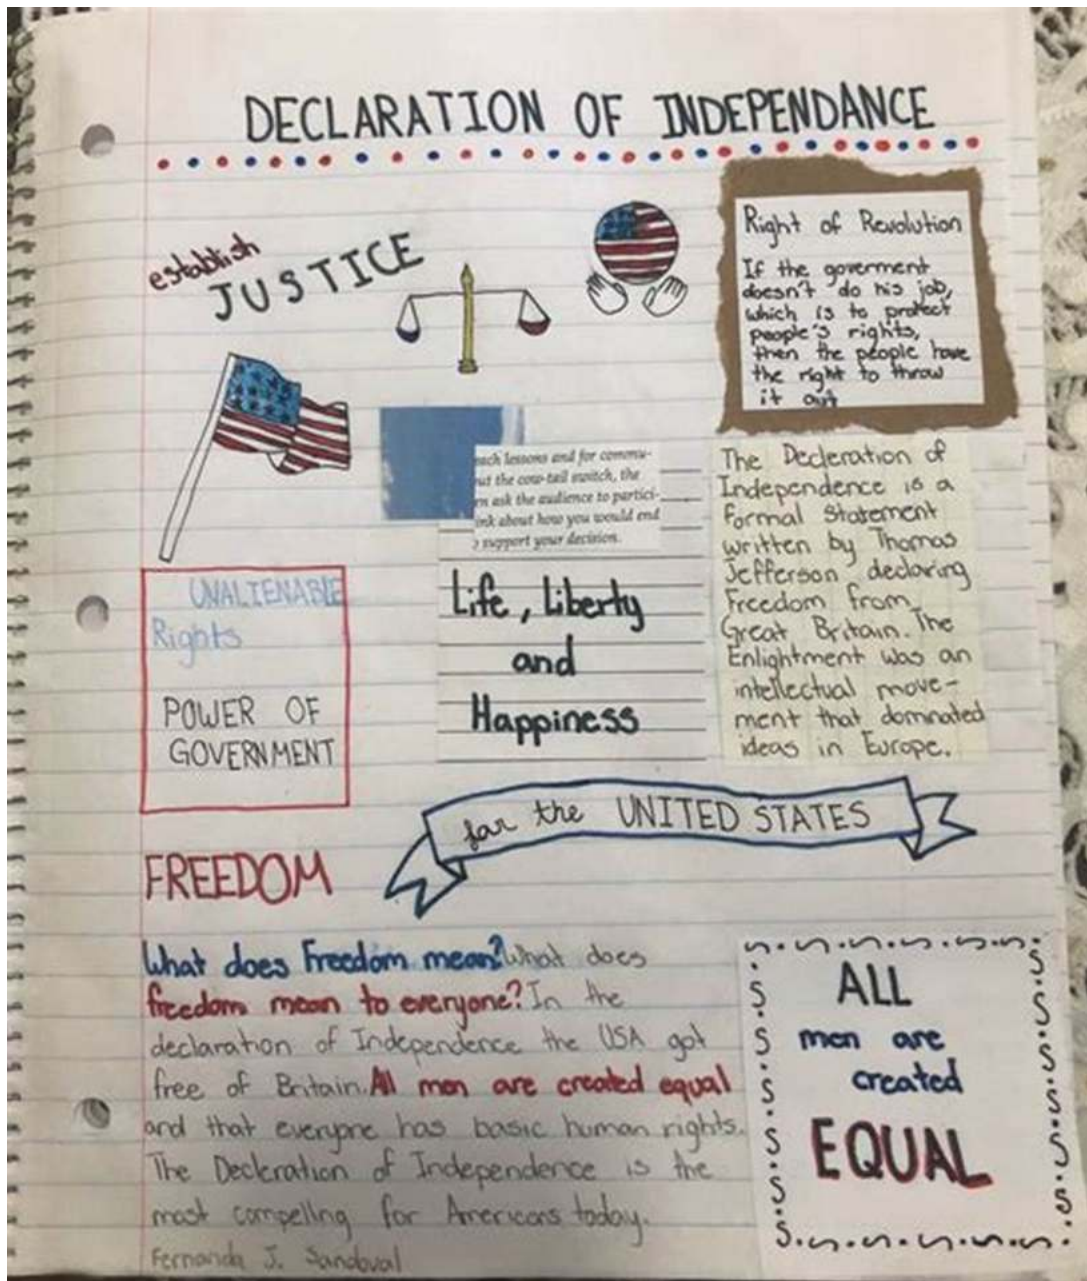 DECLARATION OF INDEPENDANCE
establish
JUSTICE
Right of Revolution
If the goverment
doesn't do his job,
which is to protect
people's rights,
then the people have
the right to throw
it out
each lessons and for commu-
ut the cow-tail switch, the
rn ask the audience to partici-
ink about how you would end
support your decision.
The Decleration of
Independence is a
formal statement
written by Thomas
Jefferson declaring
Freedom from
Great Britain. The
Enlightment was an
intellectual move-
ment that dominated
ideas in Europe.
UNALIENABLE
Rights
POWER OF
GOVERNMENT
Life, Liberty
and
Happiness
for the UNITED STATES
FREEDOM
What does Freedom mean? What does
freedom mean to everyone? In the
declaration of Independence the USA got
free of Britain. All men are created equal
and that everyone has basic human rights.
The Decleration of Independence is the
most compelling for Americans today.
Fernanda J. Sandoval
ALL
men are
created
EQUAL